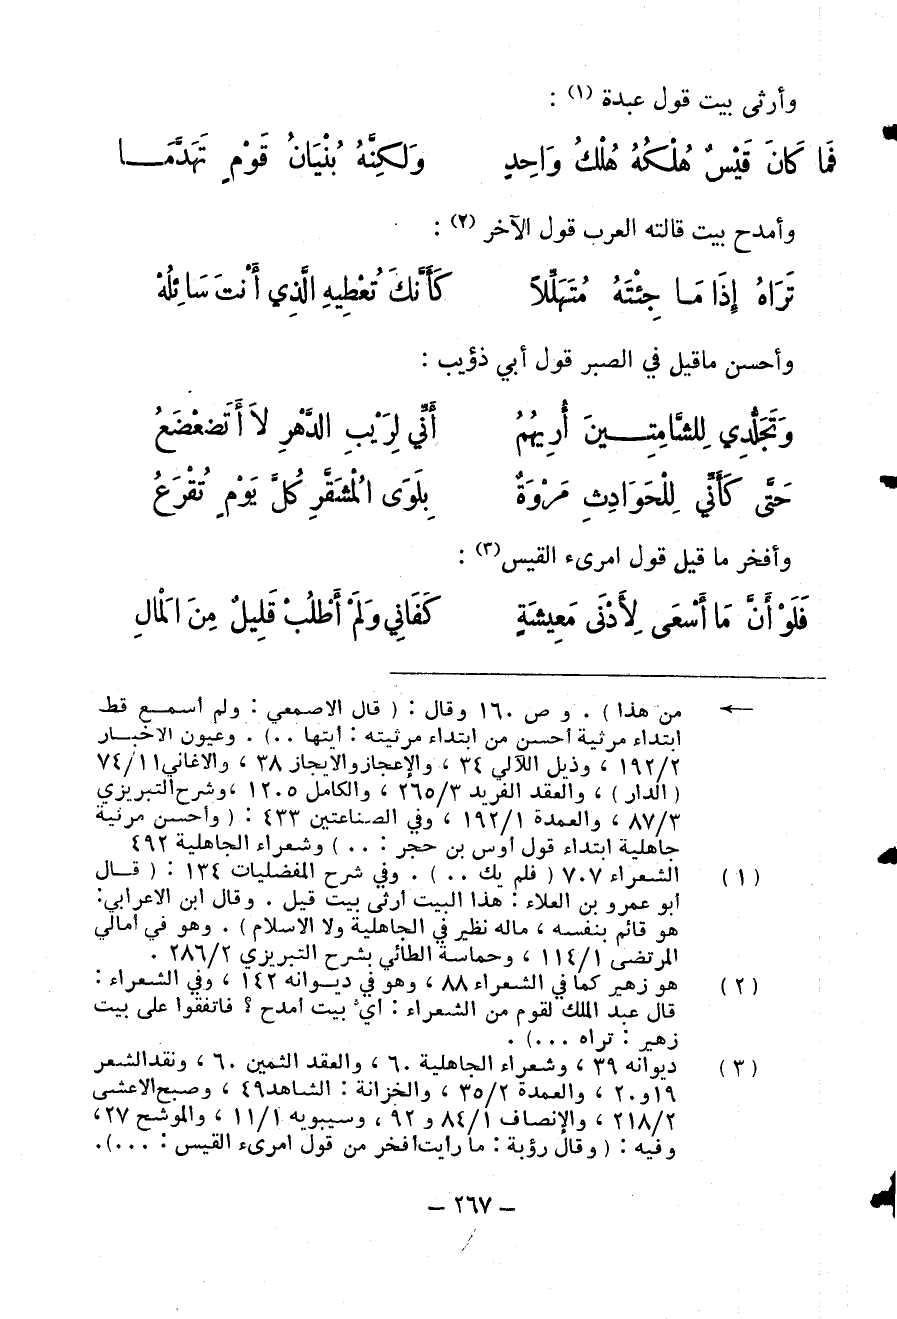 وأرثى بيت قول عبدة (١) :
فَمَا كَانَ قَيْسٌ هُلْكُهُ هُلْكُ وَاحِدٍ وَلَكِنَّهُ بُنْيَانُ قَوْمٍ تَهَدَّمَــا
وأمدح بيت قالته العرب قول الآخر (٢) :
تَرَاهُ إِذَا مَـا جِئْتَهُ مُتَهَلِّلاً كَأَنَّكَ تُعْطِيهِ الَّذِي أَنْتَ سَائِلُهْ
وأحسن ماقيل في الصبر قول أبي ذؤيب :
وَتَجَلُّدِي لِلشَّامِتِـــينَ أُرِيهُمُ أَنِّي لِرَيْبِ الدَّهْرِ لاَ أَتَضعْضَعُ
حَتَّى كَأَنِّي لِلْحَوَادِثِ مَرْوَةٌ بِلَوَى الْمُشَقَّرِ كُلَّ يَوْمٍ تُقْرَعُ
وأفخر ما قيل قول امرىء القيس(٣) :
فَلَوْ أَنَّ مَا أَسْعَى لِأَدْنَى مَعِيشَةٍ كَفَانِي وَلَمْ أَطْلُبْ قَلِيلٌ مِنَ الْمَالِ
← من هذا ) . و ص ١٦٠ وقال : ( قال الاصمعي : ولم أسمـع قط
ابتداء مرثية أحسن من ابتداء مرثيته : أيتها ..) . وعيون الاخبـار
١٩٢/٢ ، وذيل اللآلي ٣٤ ، والإعجاز والايجاز ٣٨ ، والاغاني ٧٤/١١
( الدار ) ، والعقد الفريد ٢٦٥/٣ ، والكامل ١٢٠٥ ،وشرح التبريزي
٨٧/٣ ، والعمدة ١٩٢/١ ، وفي الصناعتين ٤٣٣ : ( وأحسن مرثية
جاهلية ابتداء قول أوس بن حجر : .. ) وشعراء الجاهلية ٤٩٢
(١) الشعراء ٧٠٧ ( فلم يك .. ) . وفي شرح المفضليات ١٣٤ : ( قـال
أبو عمرو بن العلاء : هذا البيت أرثى بيت قيل . وقال ابن الاعرابي:
هو قائم بنفسه ، ماله نظير في الجاهلية ولا الاسلام ) . وهو في أمالي
المرتضى ١١٤/١ ، وحماسة الطائي بشرح التبريزي ٢٨٦/٢ .
(٢) هو زهير كما في الشعراء ٨٨ ، وهو في ديـوانه ١٤٢ ، وفي الشعراء :
قال عبد الملك لقوم من الشعراء : أيُّ بيت أمدح ؟ فاتفقوا على بيت
زهير : تراه ...) .
(٣) ديوانه ٣٩ ، وشعراء الجاهلية ٦٠ ، والعقد الثمين ٦٠ ، ونقدالشعر
١٩و٢٠ ، والعمدة ٣٥/٢ ، والخزانة : الشاهد٤٩ ، وصبح الاعشى
٢١٨/٢ ، والإنصاف ٨٤/١ و ٩٢ ، وسيبويه ١١/١ ، والموشح ٢٧،
وفيه : ( وقال رؤبة : ما رأيت أفخر من قول امرىء القيس : ...).
– ٢٦٧ –